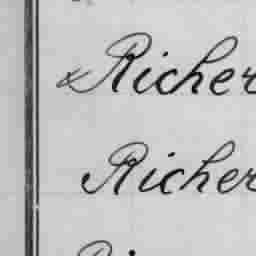 x Richer
Richer